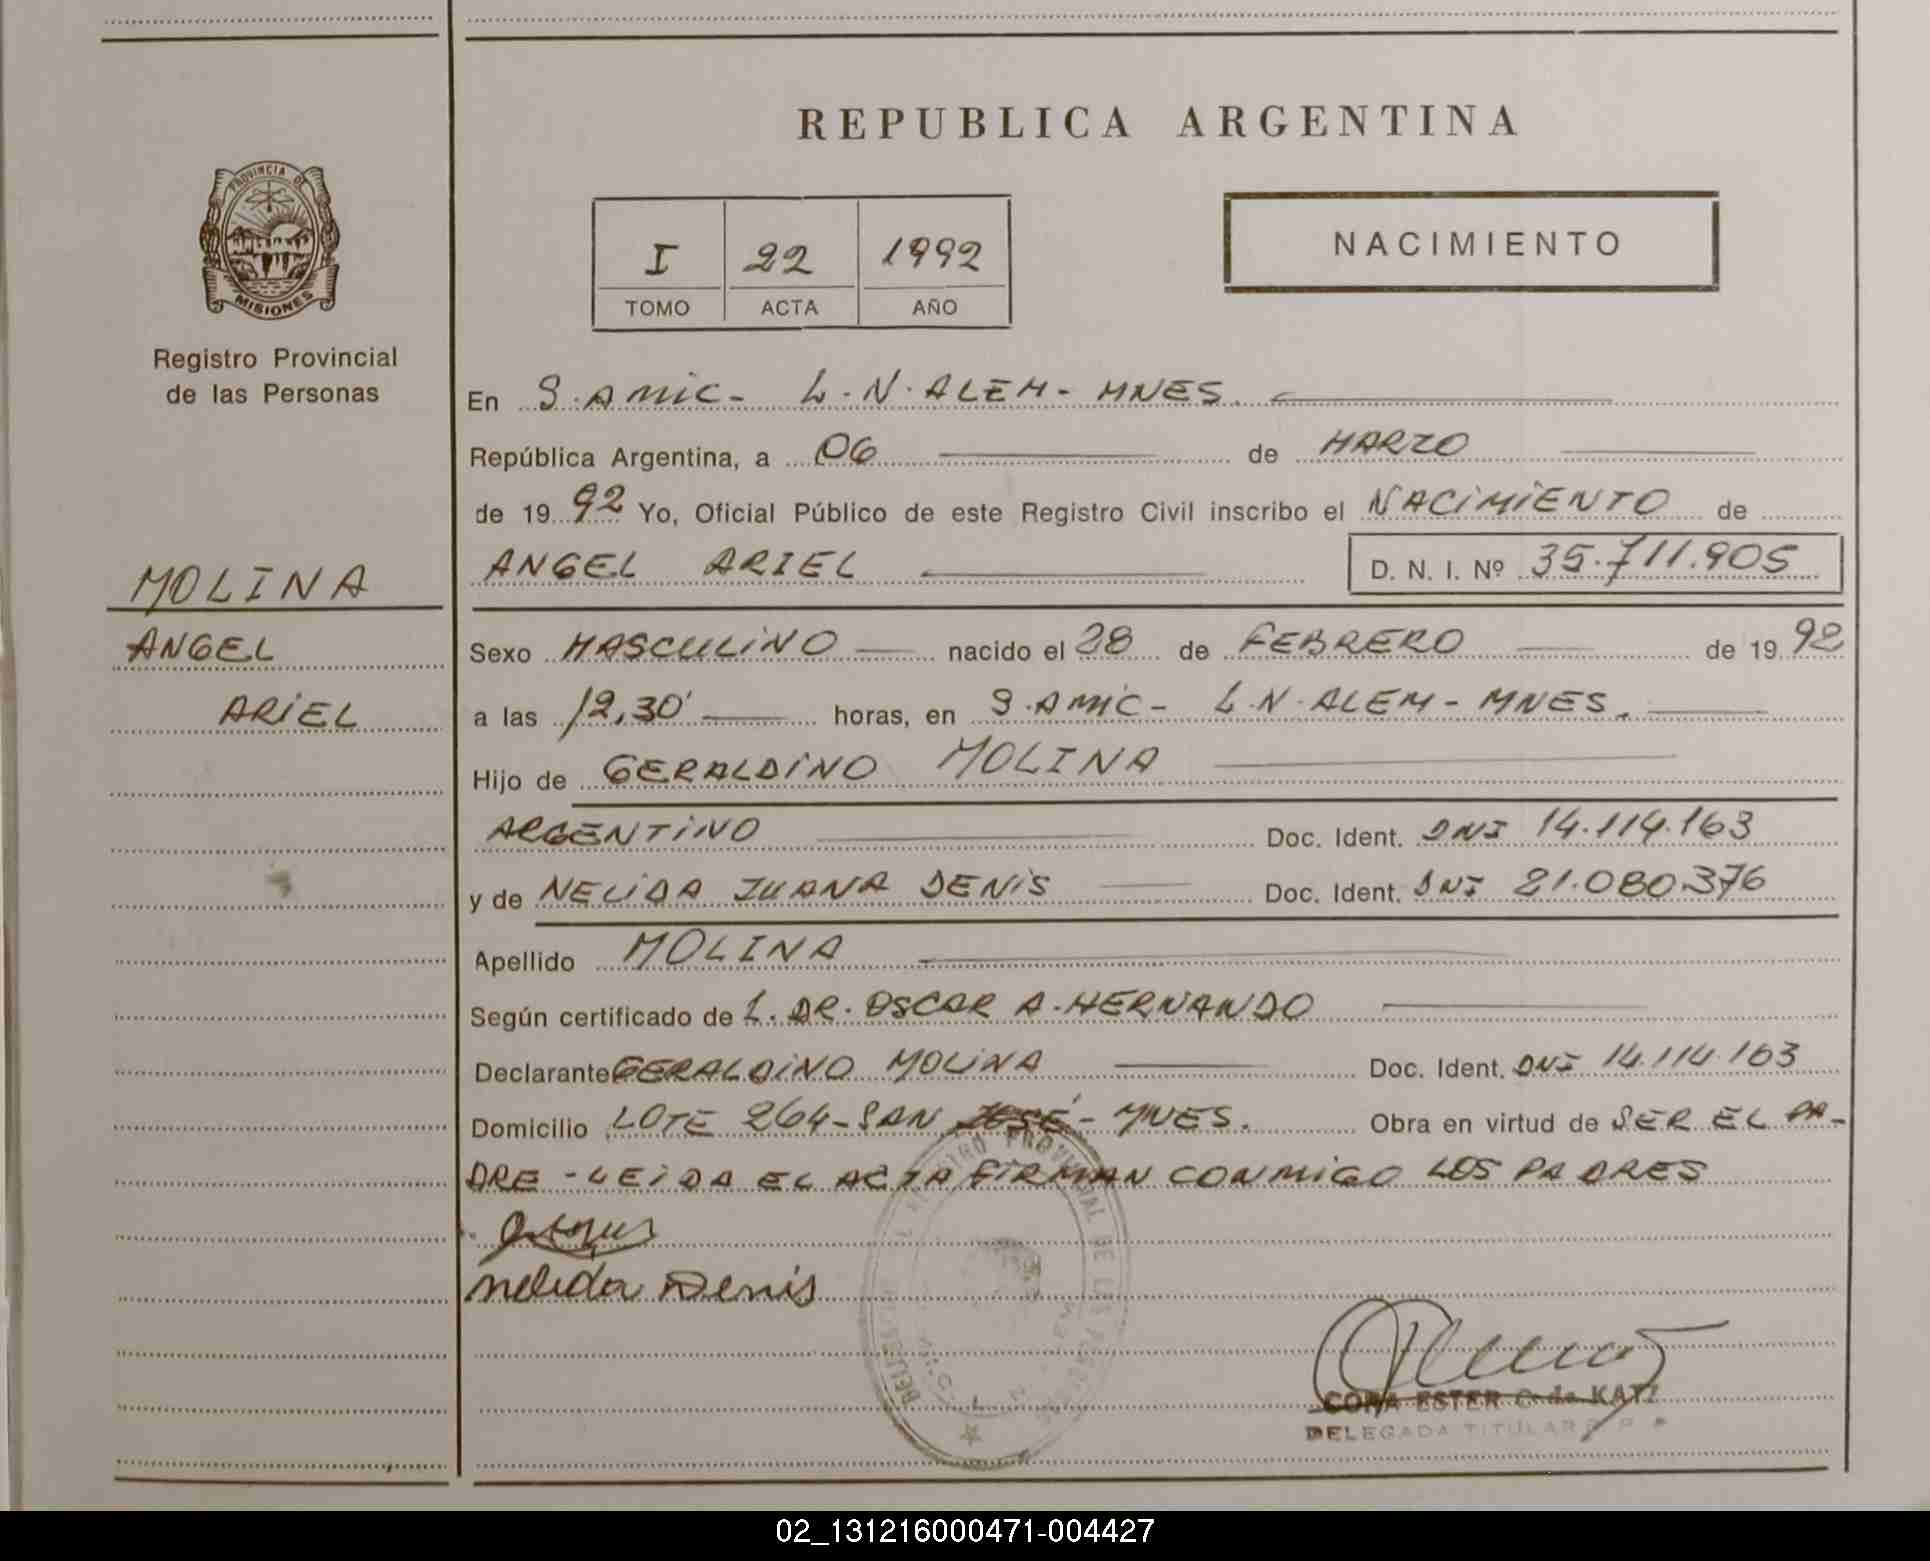 REPUBLICA ARGENTINA
PROVINCIA DE
MISIONES
Registro Provincial
de las Personas
I 22 1992
TOMO ACTA AÑO
NACIMIENTO
En S. AMIC - L.N. ALEM - MNES.
República Argentina, a 06 de MARZO
de 1992 Yo, Oficial Público de este Registro Civil inscribo el NACIMIENTO de
ANGEL ARIEL D. N. I. Nº 35.711.905
MOLINA
ANGEL
ARIEL
Sexo MASCULINO nacido el 28 de FEBRERO de 1992
a las 12,30' horas, en S. AMIC - L.N. ALEM - MNES.
Hijo de GERALDINO MOLINA
ARGENTINO Doc. Ident. DNI 14.114.163
y de NELIDA JUANA DENIS Doc. Ident. DNI 21.080.376
Apellido MOLINA
Según certificado de L. DR. OSCAR A. HERNANDO
Declarante GERALDINO MOLINA Doc. Ident. DNI 14.114.163
Domicilio LOTE 264 - SAN JOSÉ - MNES. Obra en virtud de SER EL PA-
DRE - LEIDA EL ACTA FIRMAN CONMIGO LOS PADRES
Nelida Denis
REGISTRO PROVINCIAL DE LAS
CORA ESTER C. de KATZ
DELEGADA TITULAR
02_131216000471-004427